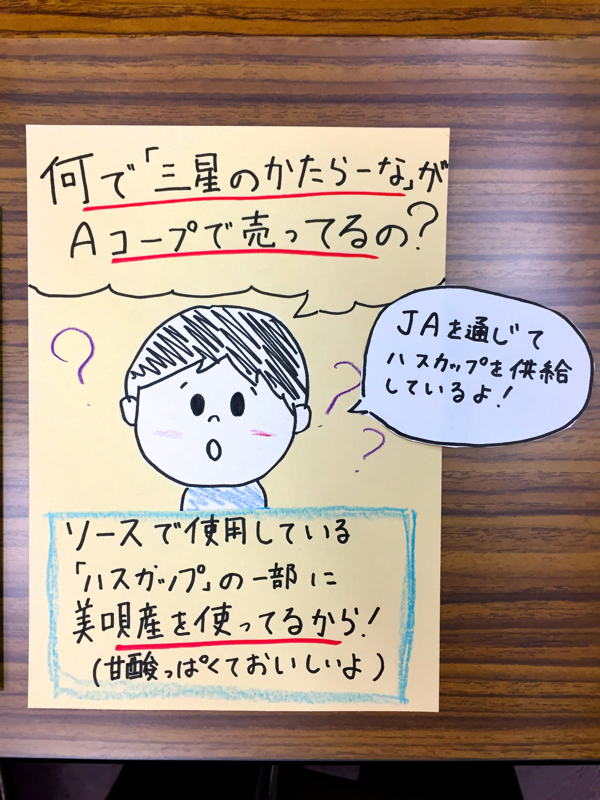 何で「三星のかたらーな」が
Aコープで売ってるの?
?
?
?
JAを通じて
ハスカップを供給
しているよ!
ソースで使用している
「ハスカップ」の一部に
美唄産を使ってるから!
(甘酸っぱくておいしいよ)